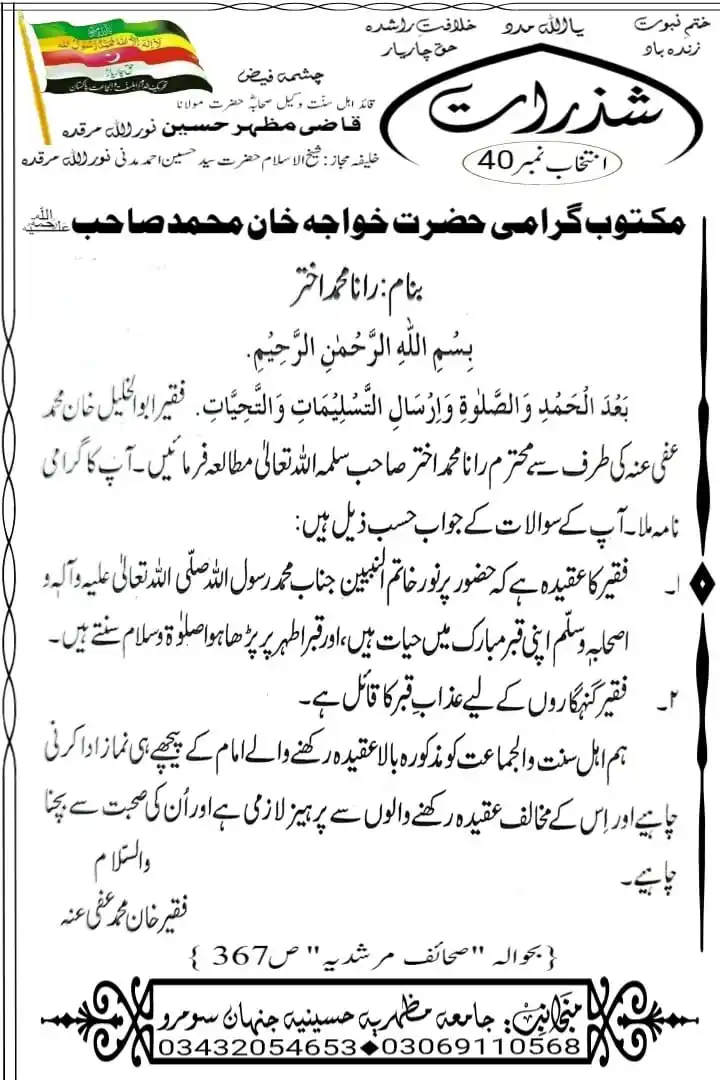 ختم نبوت
زندہ باد
یااللہ مدد
خلافت راشدہ
حق چاریار
لا الہ الا اللہ محمد رسول اللہ
حق چاریار
چشمہ فیض
قائد اہل سنت وکیل صحابہؓ حضرت مولانا
قاضی مظہر حسین نور اللہ مرقدہ
خلیفہ مجاز: شیخ الاسلام حضرت سید حسین احمد مدنی نور اللہ مرقدہ
شذرات
انتخاب نمبر 40
مکتوب گرامی حضرت خواجہ خان محمد صاحب رحمۃ اللہ علیہ
بنام: رانا محمد اختر
بِسْمِ اللهِ الرَّحْمٰنِ الرَّحِيْمِ.
بَعْدَ الْحَمْدِ وَالصَّلٰوةِ وَاِرْسَالِ التَّسْلِيْمَاتِ وَالتَّحِيَّاتِ. فقیر ابوالخلیل خان محمد
عفی عنہ کی طرف سے محترم رانا محمد اختر صاحب سلمہ اللہ تعالیٰ مطالعہ فرمائیں۔ آپ کا گرامی
نامہ ملا۔ آپ کے سوالات کے جواب حسب ذیل ہیں:
۱۔ فقیر کا عقیدہ ہے کہ حضور پرنور خاتم النبیین جناب محمد رسول اللہ صلّی اللہ تعالیٰ علیہ وآلہٖ و
اصحابہٖ وسلّم اپنی قبر مبارک میں حیات ہیں، اور قبر اطہر پر پڑھا ہوا صلوٰۃ وسلام سنتے ہیں۔
۲۔ فقیر گنہگاروں کے لیے عذابِ قبر کا قائل ہے۔
ہم اہل سنت والجماعت کو مذکورہ بالا عقیدہ رکھنے والے امام کے پیچھے ہی نماز ادا کرنی
چاہیے اور اِس کے مخالف عقیدہ رکھنے والوں سے پرہیز لازمی ہے اور اُن کی صحبت سے بچنا
چاہیے۔
والسّلام
فقیر خان محمد عفی عنہ
{ بحوالہ "صحائف مرشدیہ" ص 367 }
منجانب: جامعہ مظہریہ حسینیہ جنہان سومرو
03432054653◆03069110568